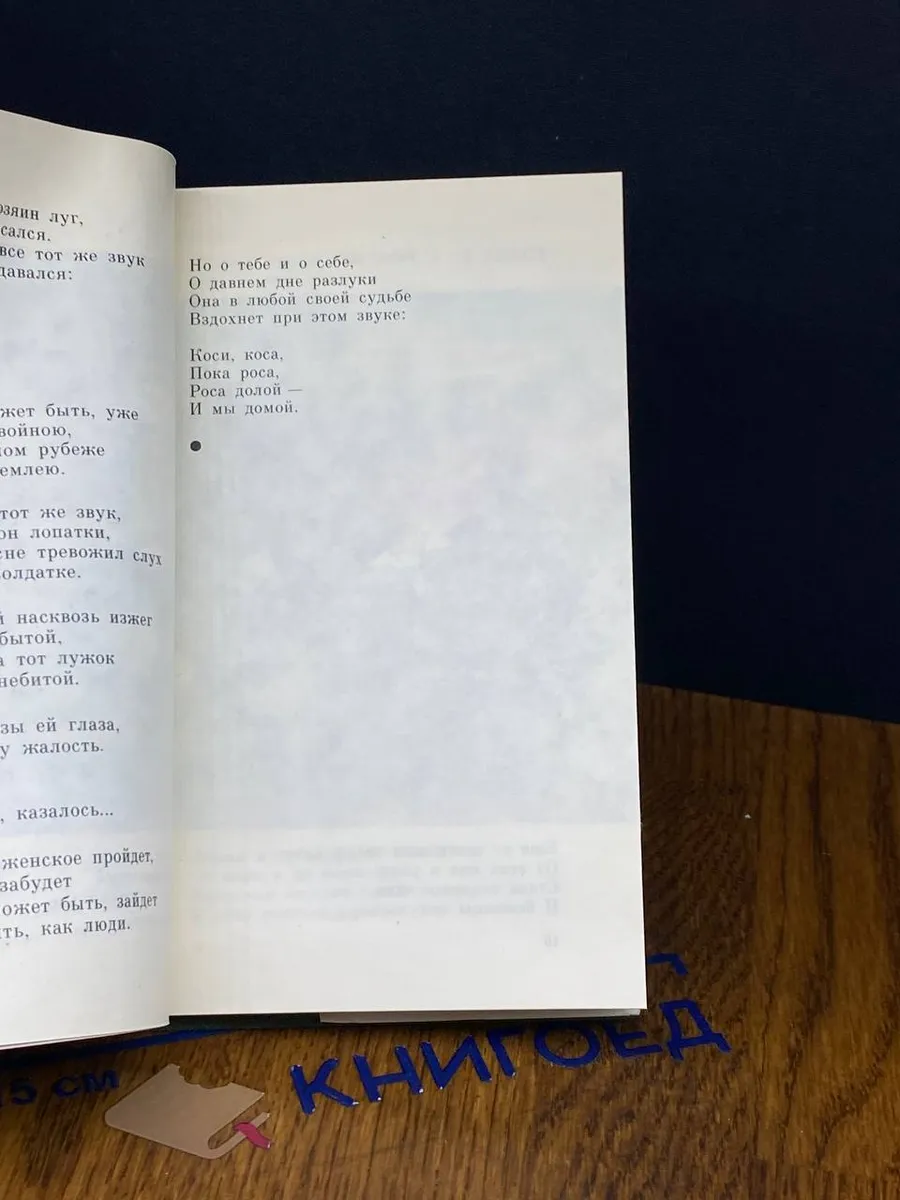 озяин луг,
сался.
все тот же звук
давался:
жет быть, уже
войною,
ом рубеже
емлею.
тот же звук,
он лопатки,
сне тревожил слух
олдатке.
й насквозь изжег
бытой,
а тот лужок
небитой.
зы ей глаза,
у жалость.
, казалось...
женское пройдет,
забудет
ожет быть, зайдет
ть, как люди.
Но о тебе и о себе,
О давнем дне разлуки
Она в любой своей судьбе
Вздохнет при этом звуке:
Коси, коса,
Пока роса,
Роса долой —
И мы домой.
●
15 см
КНИГОЕД